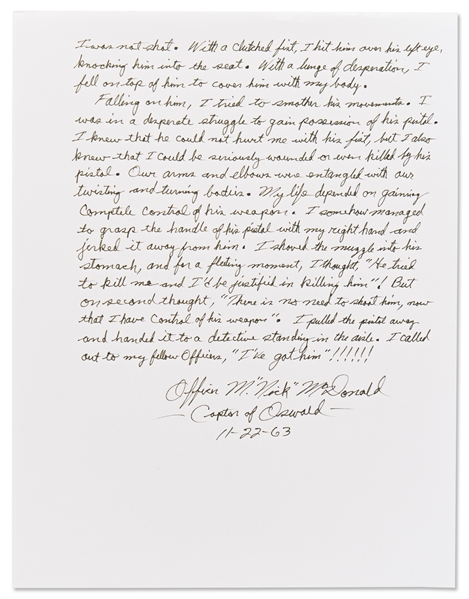 I was not shot. With a clutched fist, I hit him over his left eye,
knocking him into the seat. With a lunge of desperation, I
fell on top of him to cover him with my body.
Falling on him, I tried to smother his movements. I
was in a desperate struggle to gain possession of his pistol.
I knew that he could not hurt me with his fist, but I also
knew that I could be seriously wounded or even killed by his
pistol. Our arms and elbows were entangled with our
twisting and turning bodies. My life depended on gaining
complete control of his weapon. I somehow managed
to grasp the handle of his pistol with my right hand and
jerked it away from him. I shoved the muzzle into his
stomach, and for a fleeting moment, I thought, "He tried
to kill me and I'd be justified in killing him"! But
on second thought, "There is no need to shoot him, now
that I have control of his weapon". I pulled the pistol away
and handed it to a detective standing in the aisle. I called
out to my fellow Officers, "I've got him"!!!!!!
Officer M. "Nick" McDonald
- Captor of Oswald -
11-22-63